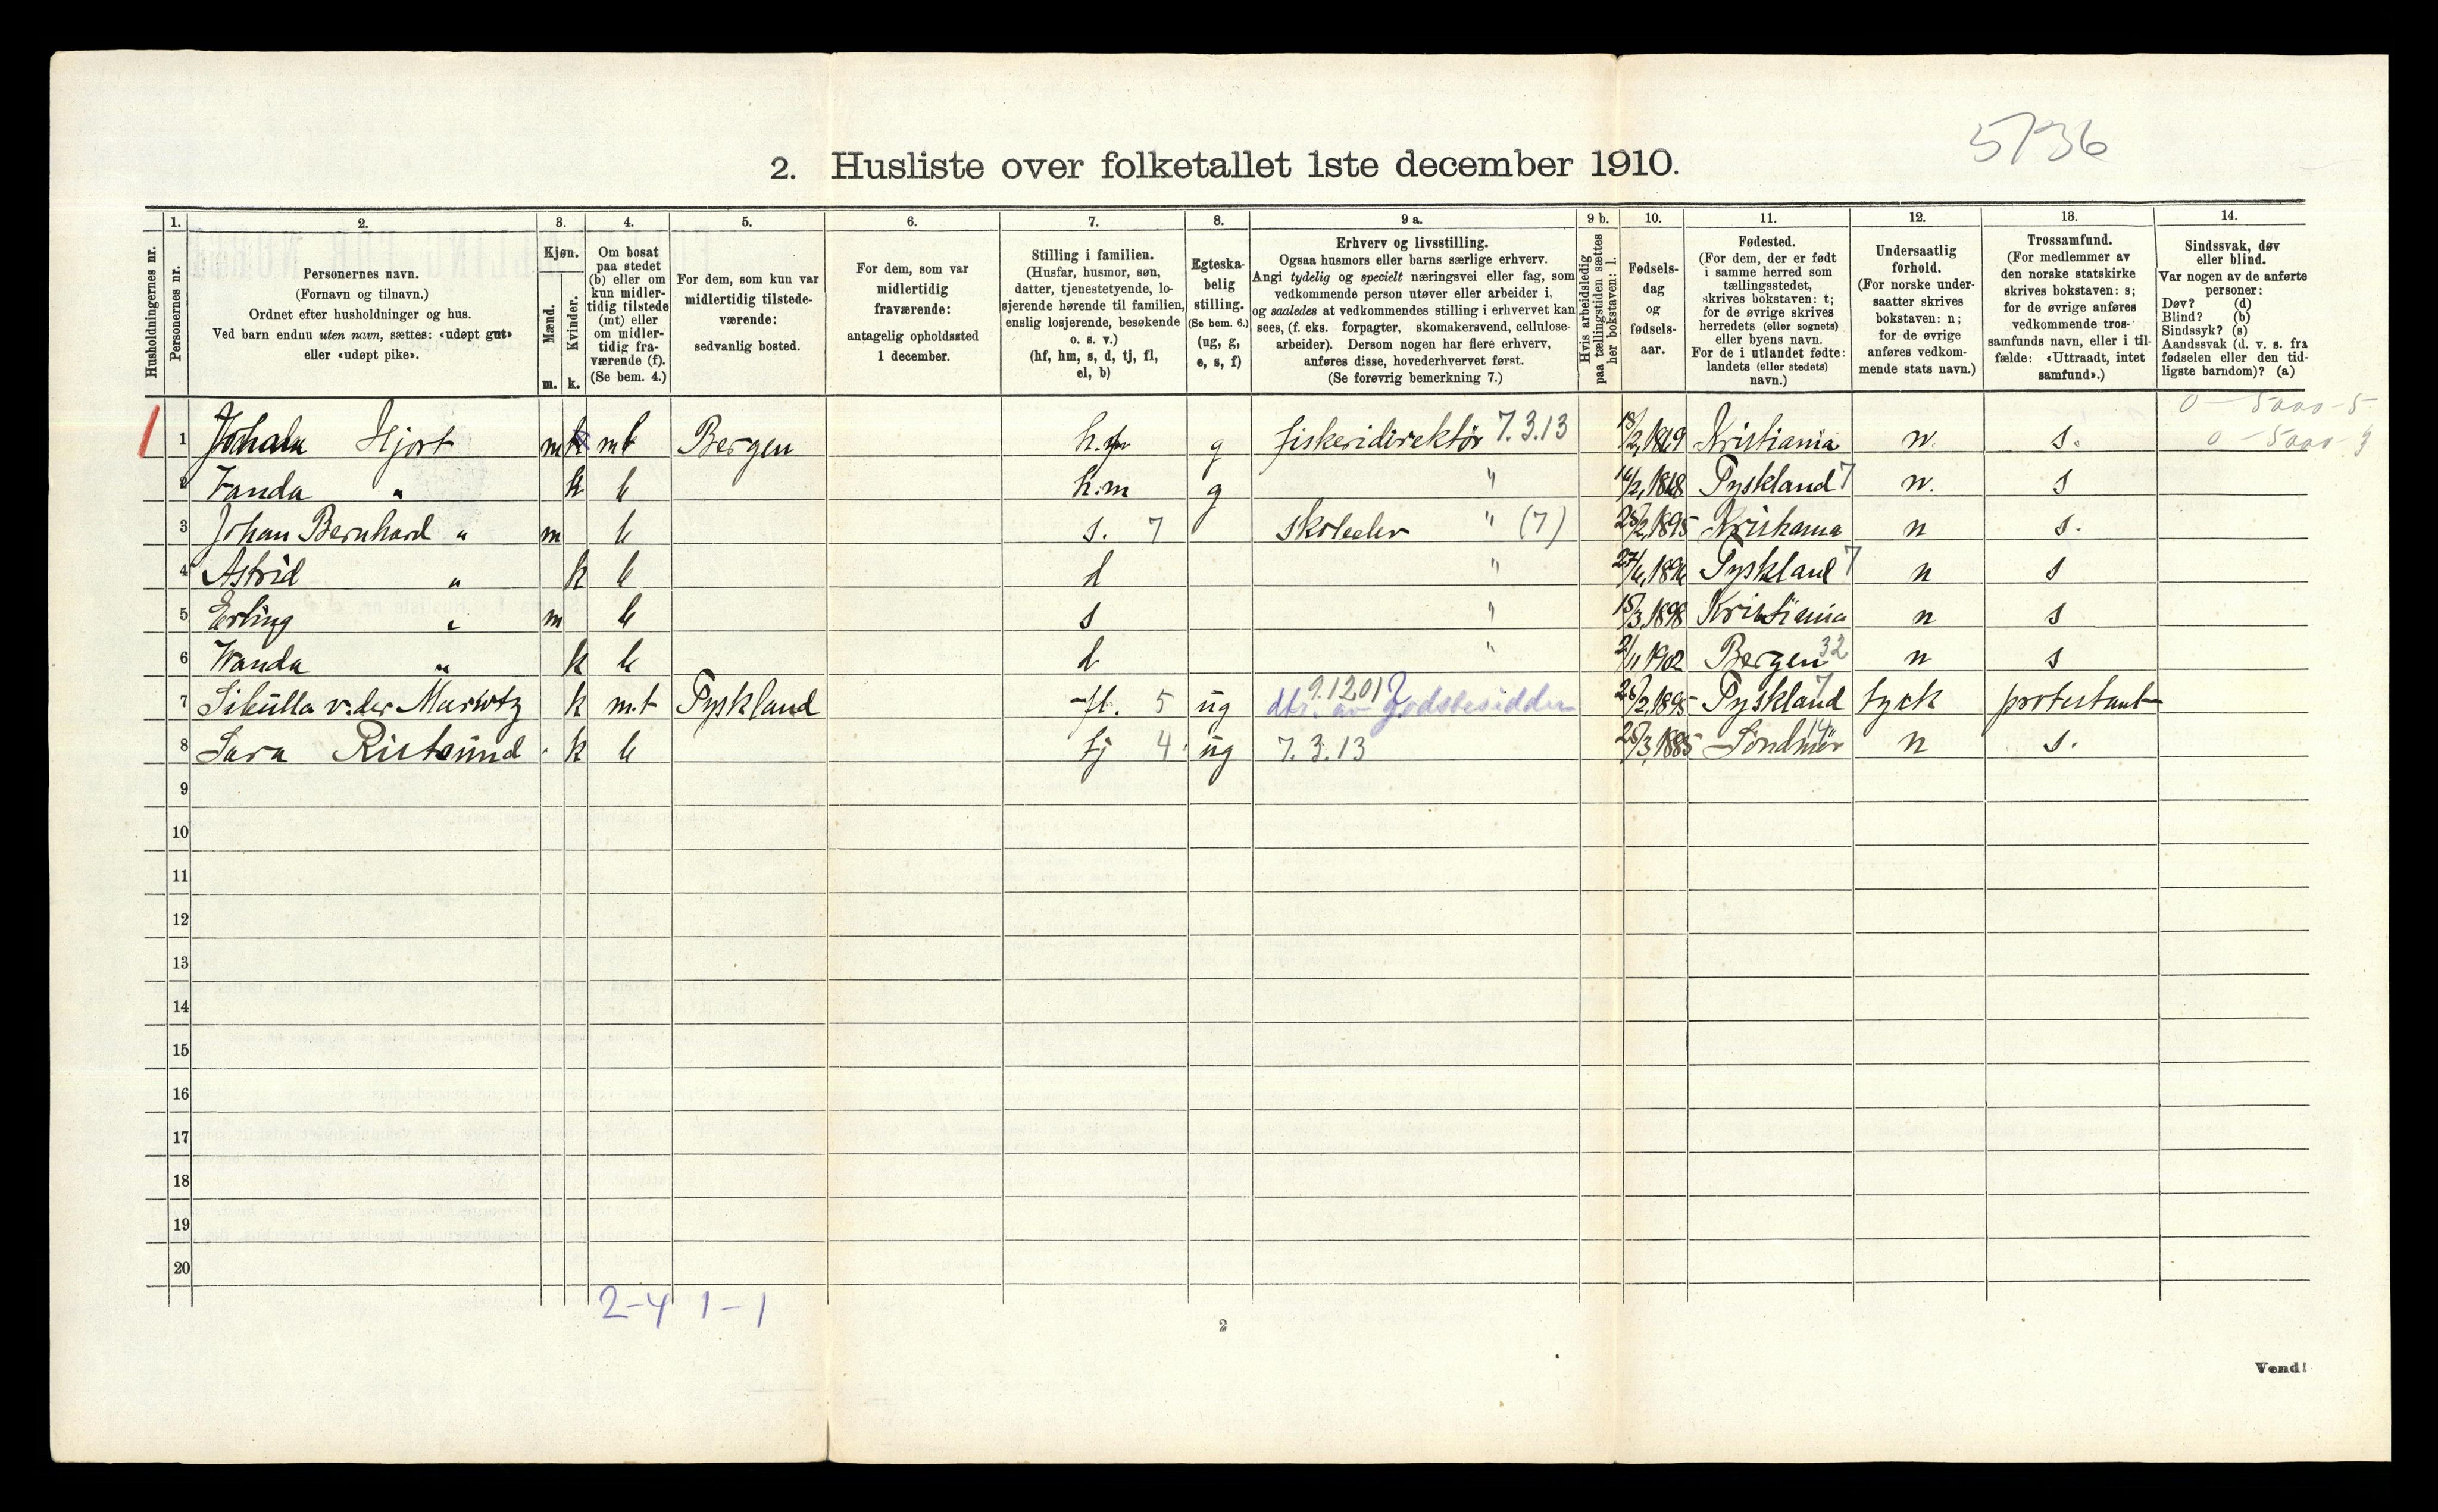 5736
2. Husliste over folketallet 1ste december 1910.
Husholdningernes nr.
1.
Personernes nr.
2.
Personernes navn.
(Fornavn og tilnavn.)
Ordnet efter husholdninger og hus.
Ved barn endnu uten navn, sættes: «udøpt gut»
eller «udøpt pike».
3.
Kjøn.
Mænd.
Kvinder.
m. k.
4.
Om bosat
paa stedet
(b) eller om
kun midler-
tidig tilstede
(mt) eller
om midler-
tidig fra-
værende (f).
(Se bem. 4.)
5.
For dem, som kun var
midlertidig tilstede-
værende:
sedvanlig bosted.
6.
For dem, som var
midlertidig
fraværende:
antagelig opholdssted
1 december.
7.
Stilling i familien.
(Husfar, husmor, søn,
datter, tjenestetyende, lo-
sjerende hørende til familien,
enslig losjerende, besøkende
o. s. v.)
(hf, hm, s, d, tj, fl,
el, b)
8.
Egteska-
belig
stilling.
(Se bem. 6.)
(ug, g,
e, s, f)
9 a.
Erhverv og livsstilling.
Ogsaa husmors eller barns særlige erhverv.
Angi tydelig og specielt næringsvei eller fag, som
vedkommende person utøver eller arbeider i,
og saaledes at vedkommendes stilling i erhvervet kan
sees, (f. eks. forpagter, skomakersvend, cellulose-
arbeider). Dersom nogen har flere erhverv,
anføres disse, hovederhvervet først.
(Se forøvrig bemerkning 7.)
9 b.
Hvis arbeidsledig
paa tællingstiden sættes
her bokstaven: l.
10.
Fødsels-
dag
og
fødsels-
aar.
11.
Fødested.
(For dem, der er født
i samme herred som
tællingsstedet,
skrives bokstaven: t;
for de øvrige skrives
herredets (eller sognets)
eller byens navn.
For de i utlandet fødte:
landets (eller stedets)
navn.)
12.
Undersaatlig
forhold.
(For norske under-
saatter skrives
bokstaven: n;
for de øvrige
anføres vedkom-
mende stats navn.)
13.
Trossamfund.
(For medlemmer av
den norske statskirke
skrives bokstaven: s;
for de øvrige anføres
vedkommende tros-
samfunds navn, eller i til-
fælde: «Uttraadt, intet
samfund».)
14.
Sindssvak, døv
eller blind.
Var nogen av de anførte
personer:
Døv? (d)
Blind? (b)
Sindssyk? (s)
Aandssvak (d. v. s. fra
fødselen eller den tid-
ligste barndom)? (a)
0 - 5000 - 5
1 1 Johan Hjort m mt Bergen h.f g fiskeridirektör 7.3.13 18/2,1869 Kristiania n. s. 0 - 5000 - 3
2 Vanda " k b h.m g " 16/2,1868 Tyskland 7 n. s
3 Johan Bernhard " m b s. 7 skoleelev " (7) 25/2,1895 Kristiania n s.
4 Astrid " k b d " 27/6,1896 Tyskland 7 n s
5 Erling " m b s " 15/3,1898 Kristiania n s
6 Wanda " k b d " 2/11 1902 Bergen 32 n s
7 Sibülla v. der Marwitz k m.t Tyskland fl. 5 üg 9.1201 dtr. av Godsbesidder 25/2,1895 Tyskland 7 tysk protestant
8 Sara Ristesünd k b tj 4 üg 7.3.13 25/3,1885 Söndmör 14 n s.
9
10
11
12
13
14
15
16
17
18
19
20
2-4 1-1
2
Vend!